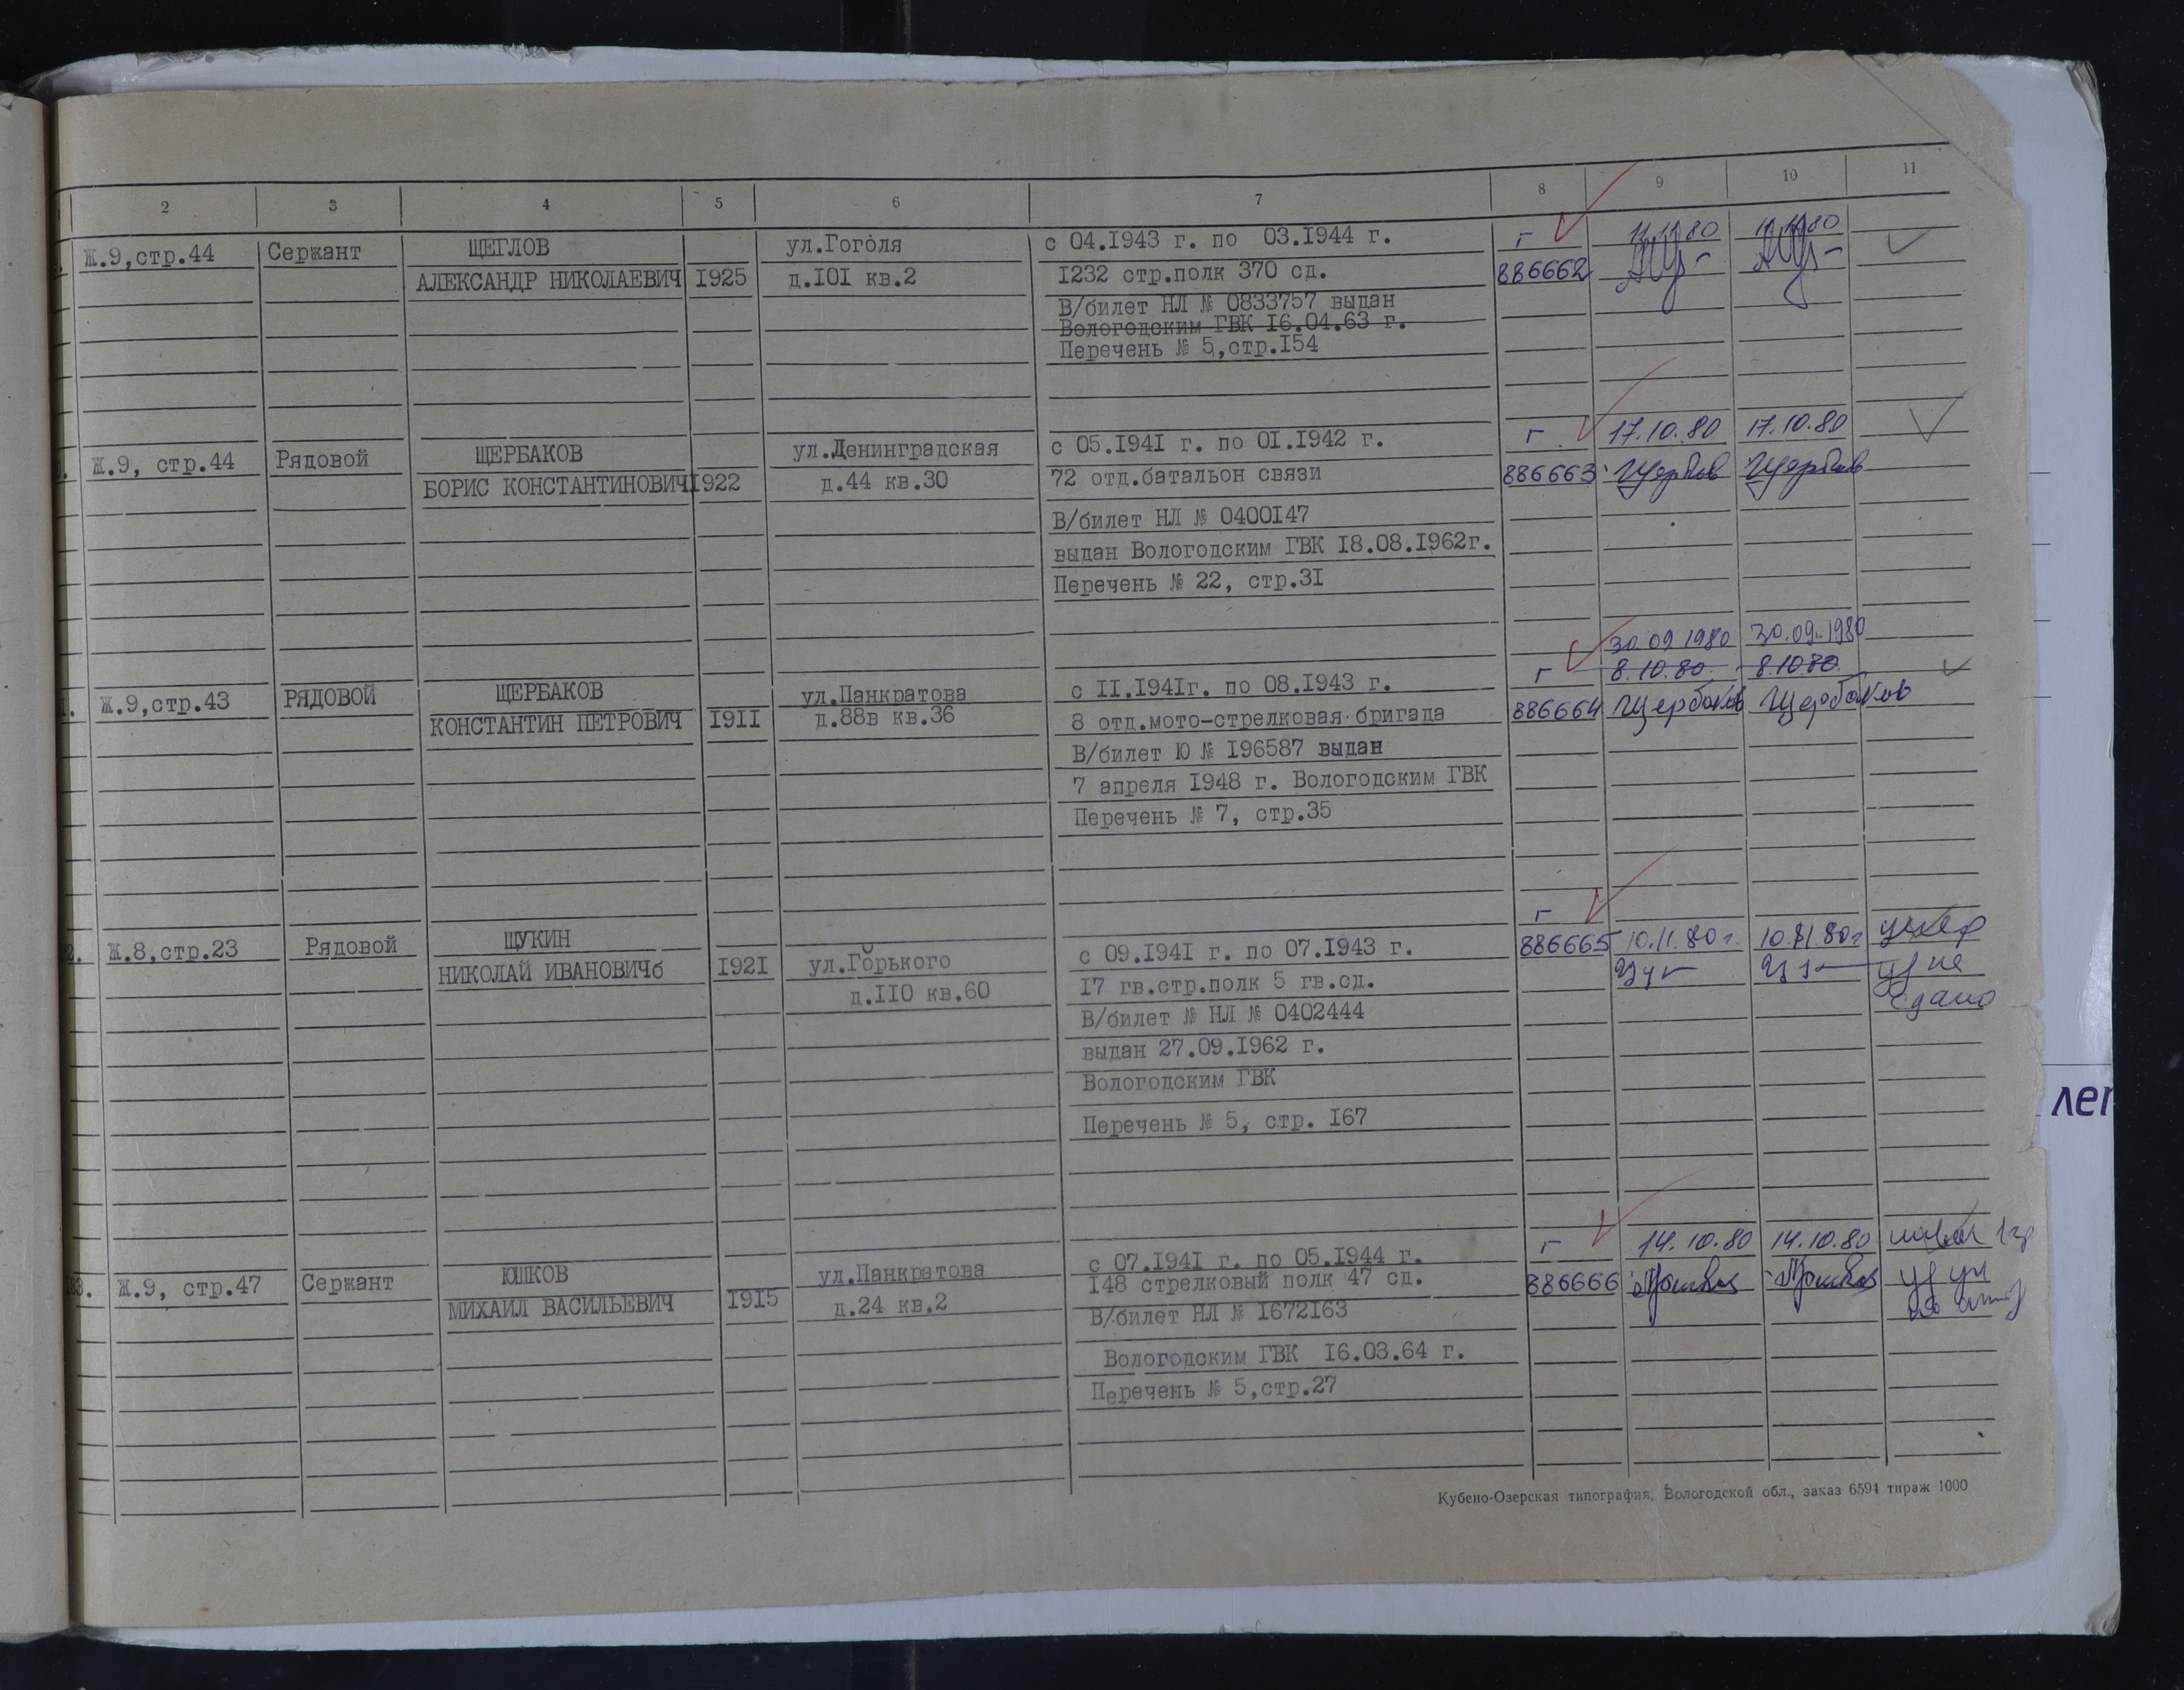 2 3 4 5 6 7 8 9 10 11
Ж.9,стр.44 Сержант ЩЕГЛОВ ул.Гоголя с 04.1943 г. по 03.1944 г. г 11.11.80
АЛЕКСАНДР НИКОЛАЕВИЧ 1925 д.101 кв.2 1232 стр.полк 370 сд. 886662
В/билет НЛ № 0833757 выдан
Вологодским ГВК 16.04.63 г.
Перечень № 5,стр.154
Ж.9, стр.44 Рядовой ЩЕРБАКОВ ул.Ленинградская с 05.1941 г. по 01.1942 г. г 17.10.80 17.10.80
БОРИС КОНСТАНТИНОВИЧ 1922 д.44 кв.30 72 отд.батальон связи 886663
В/билет НЛ № 0400147
выдан Вологодским ГВК 18.08.1962г.
Перечень № 22, стр.31
30.09.1980 30.09.1980
г 8.10.80. 8.10.80.
Ж.9,стр.43 РЯДОВОЙ ЩЕРБАКОВ ул.Панкратова с 11.1941г. по 08.1943 г.
КОНСТАНТИН ПЕТРОВИЧ 1911 д.88в кв.36 8 отд.мото-стрелковая бригада 886664 Щербаков Щербаков
В/билет Ю № 196587 выдан
7 апреля 1948 г. Вологодским ГВК
Перечень № 7, стр.35
г
Ж.8,стр.23 Рядовой ЩУКИН с 09.1941 г. по 07.1943 г. 886665 10.11.80г. 10.11.80г
НИКОЛАЙ ИВАНОВИЧб 1921 ул.Горького 17 гв.стр.полк 5 гв.сд. уд не
д.110 кв.60 В/билет № НЛ № 0402444 сдано
выдан 27.09.1962 г.
Вологодским ГВК
Перечень № 5, стр. 167
с 07.1941 г. по 05.1944 г. г 14.10.80 14.10.80
83. Ж.9, стр.47 Сержант ЮШКОВ ул.Панкратова 148 стрелковый полк 47 сд. 886666
МИХАИЛ ВАСИЛЬЕВИЧ 1915 д.24 кв.2 В/билет НЛ № 1672163
Вологодским ГВК 16.03.64 г.
Перечень № 5,стр.27
Кубено-Озерская типография, Вологодской обл., заказ 6594 тираж 1000